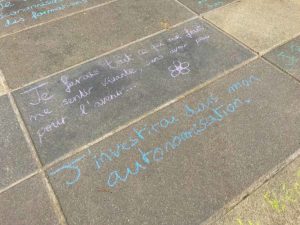 des formations
Je ferais tout ce qui me fait
me sentir vivante, vers
pour l'avenir...
J'investirai dans mon
autonomisation.